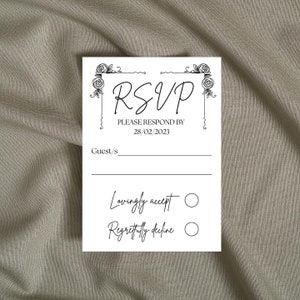 RSVP
PLEASE RESPOND BY
28/02/2023
Guest/s
Lovingly accept
Regretfully decline